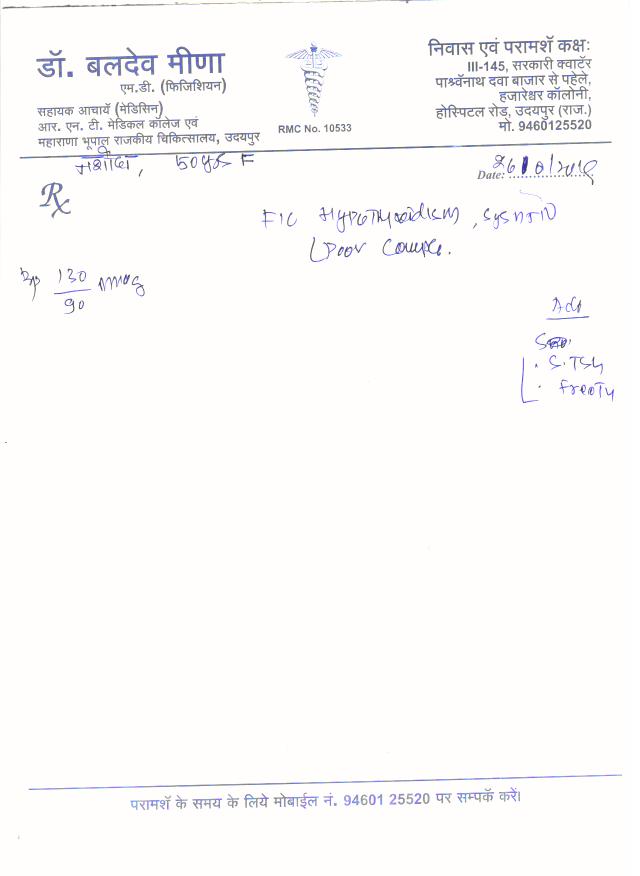 डॉ. बलदेव मीणा
एम.डी. (फिजिशियन)
सहायक आचार्य (मेडिसिन)
आर. एन. टी. मेडिकल कॉलेज एवं
महाराणा भूपाल राजकीय चिकित्सालय, उदयपुर
RMC No. 10533
निवास एवं परामर्शॅ कक्ष:
III-145, सरकारी क्वार्टर
पार्श्वॅनाथ दवा बाजार से पहेले,
हजारेश्वर कॉलोनी,
होस्पिटल रोड़, उदयपुर (राज.)
मो. 9460125520
50yrs F
Date:
Rx
F/C Hypothyroidism, Sys HTN
Poor Complc.
Bp 130/90 mmHg
Adv
S.TSH
FreeT4
परामर्शॅ के समय के लिये मोबाईल नं. 94601 25520 पर सम्पर्कॅ करें।